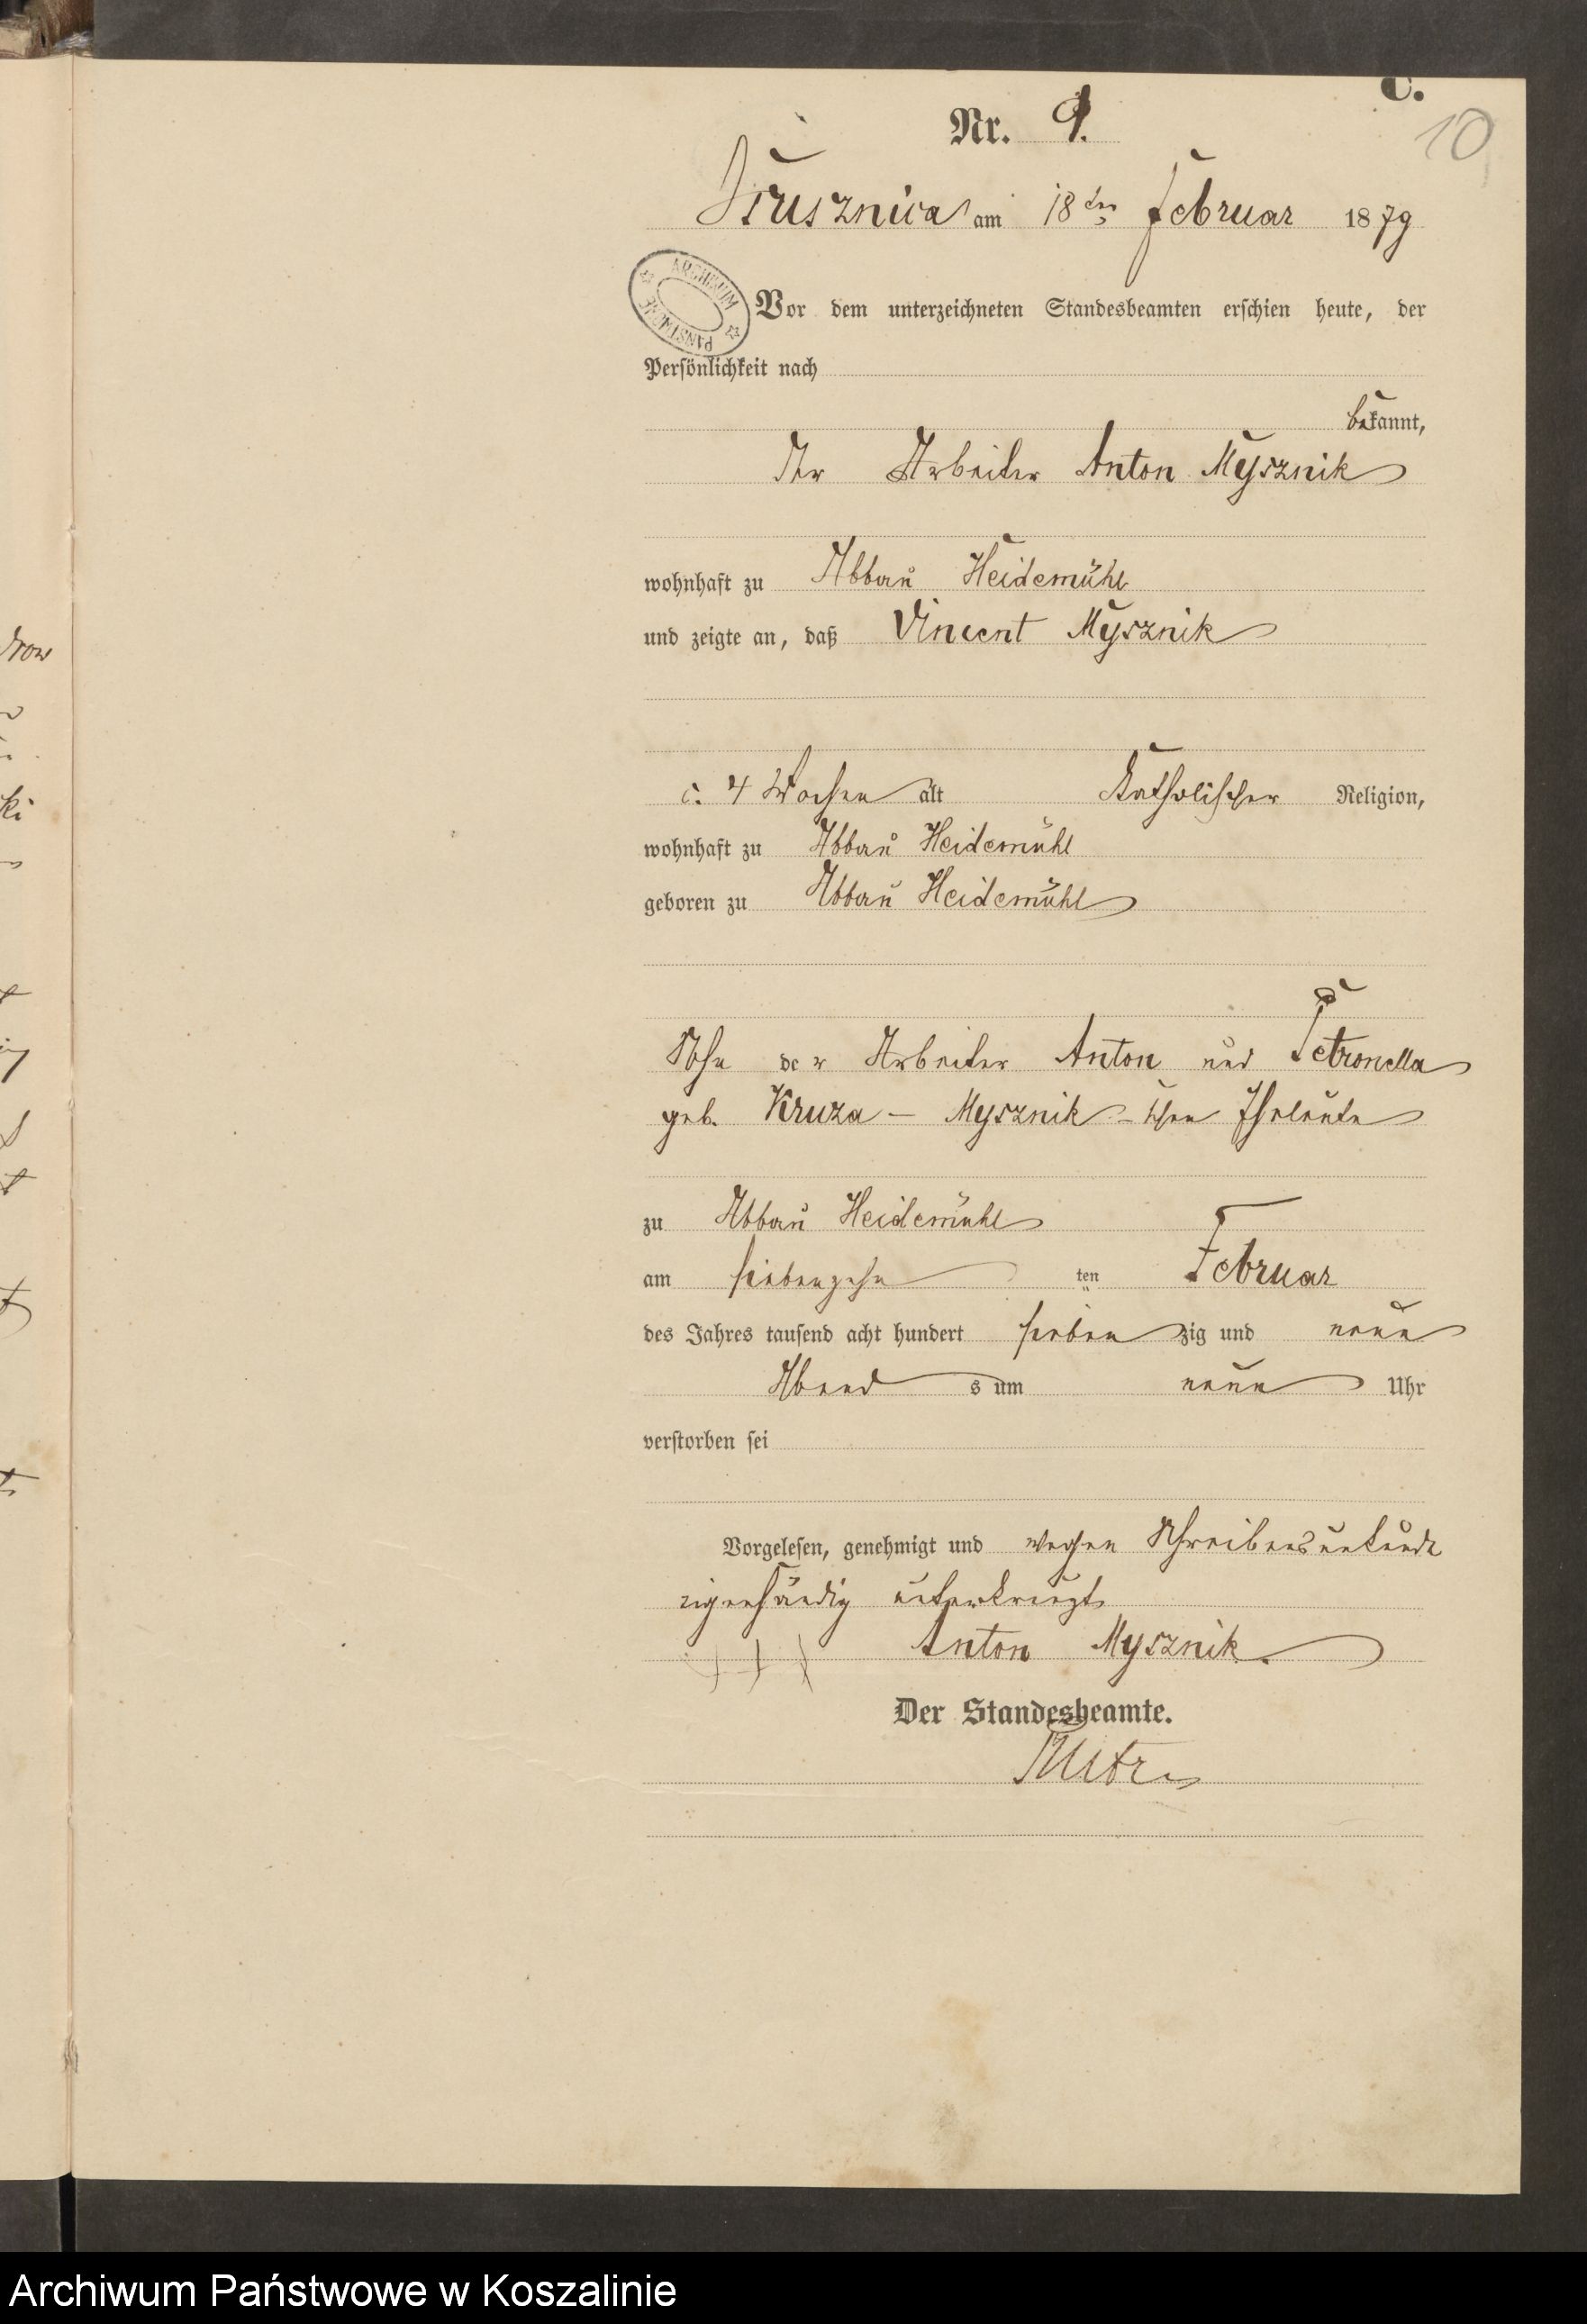 C.
Nr. 9.
10
am 18ten Februar 1879
ARCHIWUM PAŃSTWOWE
Vor dem unterzeichneten Standesbeamten erschien heute, der
Persönlichkeit nach
bekannt,
Der Arbeiter Anton Mysznik
wohnhaft zu Abbau Heidemühl
und zeigte an, daß Vincent Mysznik
c. 4 Wochen alt Katholischer Religion,
wohnhaft zu Abbau Heidemühl
geboren zu Abbau Heidemühl
Sohn der Arbeiter Anton und Petronella
geb. Kruza – Mysznik – schen Eheleute
zu Abbau Heidemühl
am siebenzehn ten Februar
des Jahres tausend acht hundert sieben zig und neun
Abend s um neun Uhr
verstorben sei
Vorgelesen, genehmigt und wegen Schreibensunkunde
eigenhändig unterkreuzt
+ + + Anton Mysznik.
Der Standesbeamte.
Archiwum Państwowe w Koszalinie